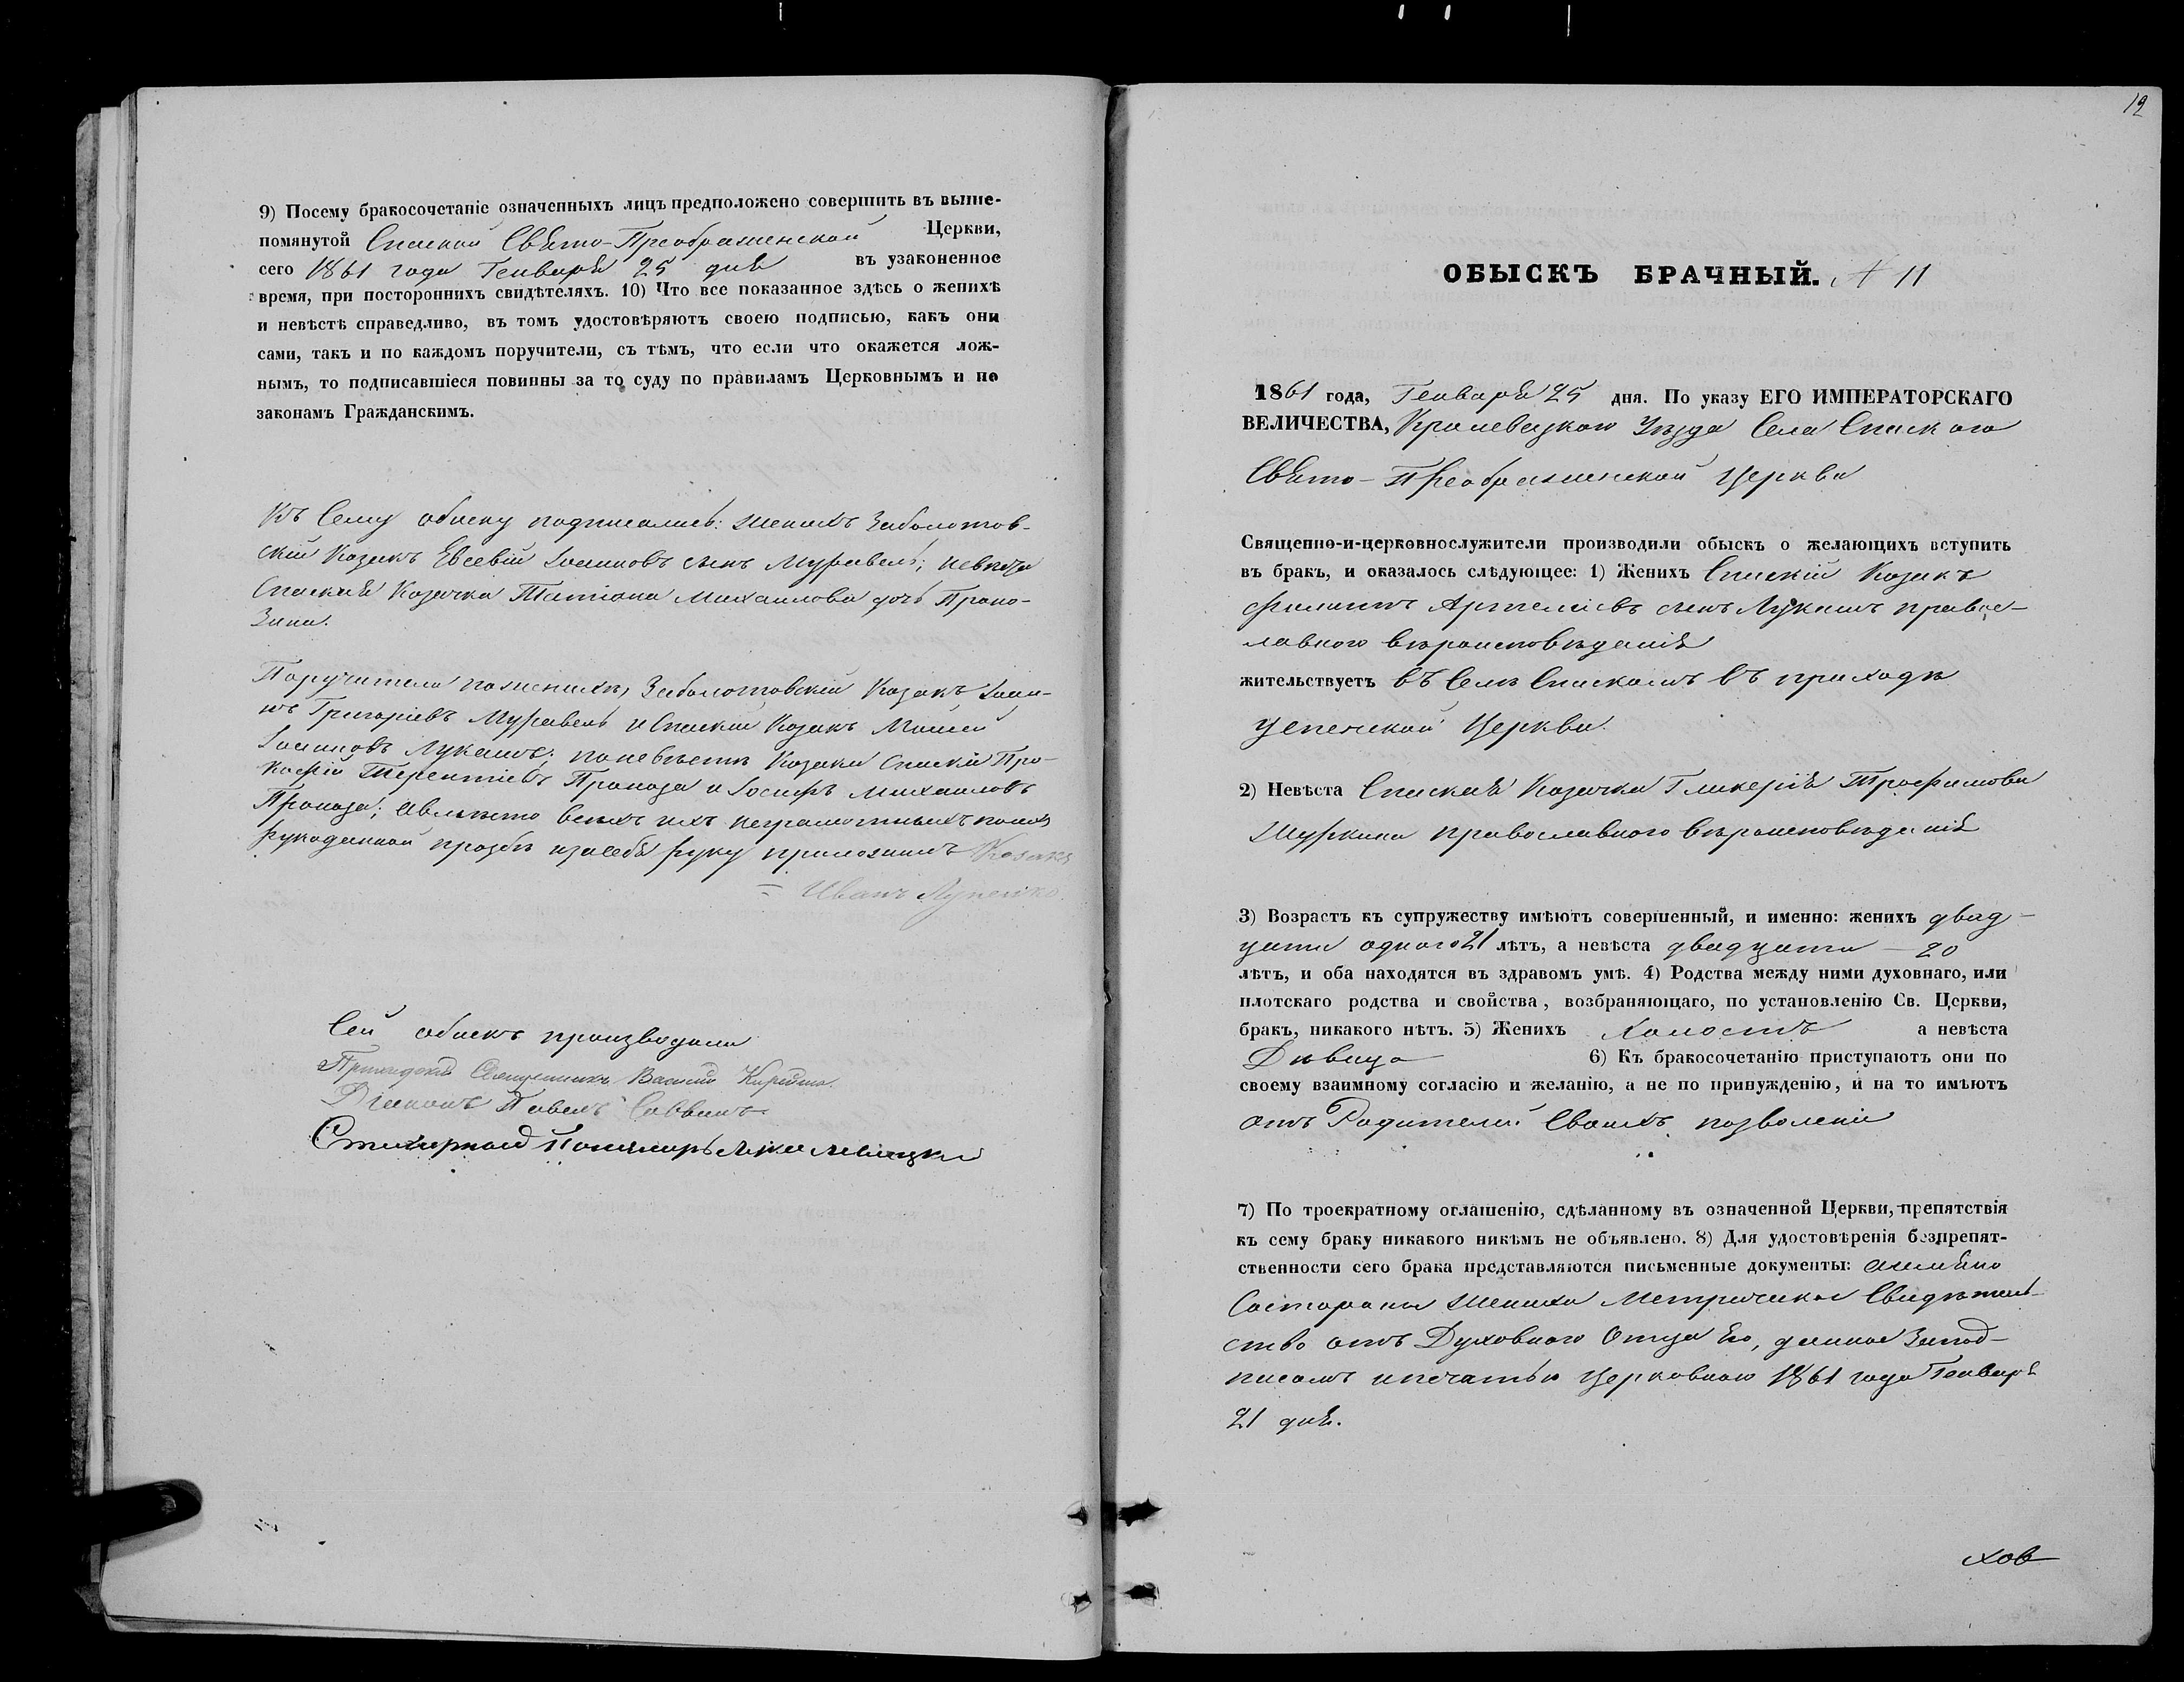 9) Посему бракосочетаніе означенныхъ лицъ предположено совершить въ выше-
помянутой Спаской Свято-Преображенской Церкви,
сего 1861 года Генваря 25 дня въ узаконенное
время, при постороннихъ свидѣтеляхъ. 10) Что все показанное здѣсь о женихѣ
и невѣстѣ справедливо, въ томъ удостовѣряютъ своею подписью, какъ они
сами, такъ и по каждомъ поручители, съ тѣмъ, что если что окажется лож-
нымъ, то подписавшіеся повинны за то суду по правиламъ Церковнымъ и по
законамъ Гражданскимъ.
Къ Сему обыску подписались: женихъ Заболотов-
скій Козакъ Евсевій Іоанновъ сынъ Муравель; невѣста
Спаская Козачка Татіана Михайлова дочь Пропо-
зина.
Поручители по женихѣ, Заболотовскій Козакъ Іоан-
нъ Григоріевъ Муравель и Спаскій Козакъ Моисей
Іоанновъ Лукашъ; по невѣстѣ Козаки Спаскіи Про-
кофій Терентіевъ Пропоза и Іосифъ Михаиловъ
Пропоза; а вмѣсто всѣхъ ихъ неграмотныхъ по ихъ
рукоданной прозбѣ и за себя руку приложилъ Козакъ
Иванъ Лупенко.
Сей обыскъ производили
Приходскій Священникъ Василій
Діаконъ Павелъ Саввичъ
Стихарный Пономарь
12
ОБЫСКЪ БРАЧНЫЙ. N 11
1861 года, Генваря 25 дня. По указу ЕГО ИМПЕРАТОРСКАГО
ВЕЛИЧЕСТВА, Кролевецкого Уѣзда Села Спаского
Свято-Преображенской Церкви
Священно-и-церковнослужители производили обыскъ о желающихъ вступить
въ бракъ, и оказалось слѣдующее: 1) Женихъ Спаскій Козакъ
Филиппъ Артеміевъ сынъ Лукашъ право-
славного вѣроисповѣданія
жительствуетъ въ Селѣ Спаскомъ въ приходѣ
Успенской Церкви.
2) Невѣста Спаская Козачка Гликерія Трофимова
Шуркина православного вѣроисповѣданія
3) Возрастъ къ супружеству имѣютъ совершенный, и именно: женихъ двад-
цати одного 21 лѣтъ, а невѣста двадцати — 20
лѣтъ, и оба находятся въ здравомъ умѣ. 4) Родства между ними духовнаго, или
плотскаго родства и свойства, возбраняющаго, по установленію Св. Церкви,
бракъ, никакого нѣтъ. 5) Женихъ Холостъ а невѣста
Дѣвица 6) Къ бракосочетанію приступаютъ они по
своему взаимному согласію и желанію, а не по принужденію, и на то имѣютъ
отъ Родителей Своихъ позволеніе
7) По троекратному оглашенію, сдѣланному въ означенной Церкви, препятствія
къ сему браку никакого никѣмъ не объявлено. 8) Для удостовѣренія безпрепят-
ственности сего брака представляются письменные документы: аимянно
Состороны жениха Метрическое Свидѣтель-
ство отъ Духовного Отца Его, данное Запод-
писомъ ипечатью Церковною 1861 года Генваря
21 дня.
хов